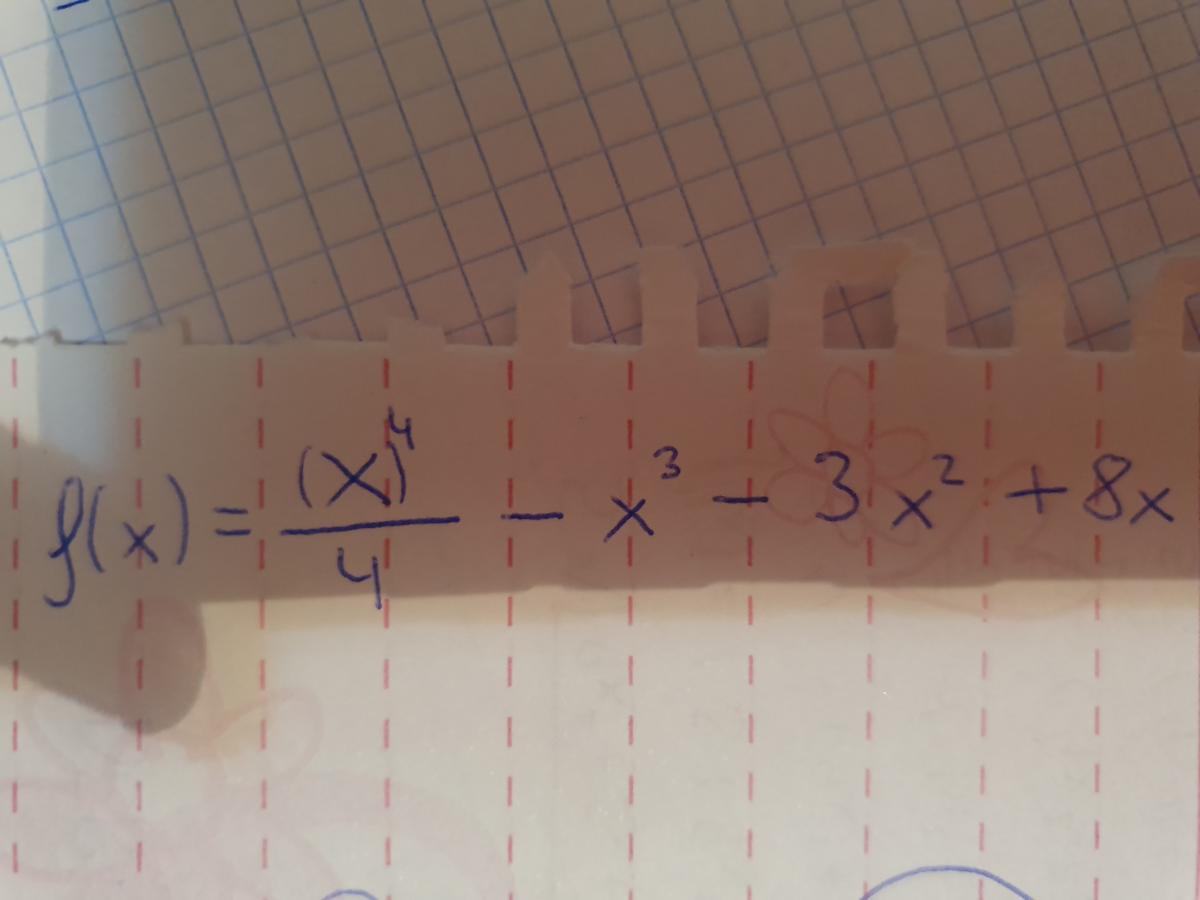 f(x) = (x)⁴/4 − x³ − 3x² + 8x